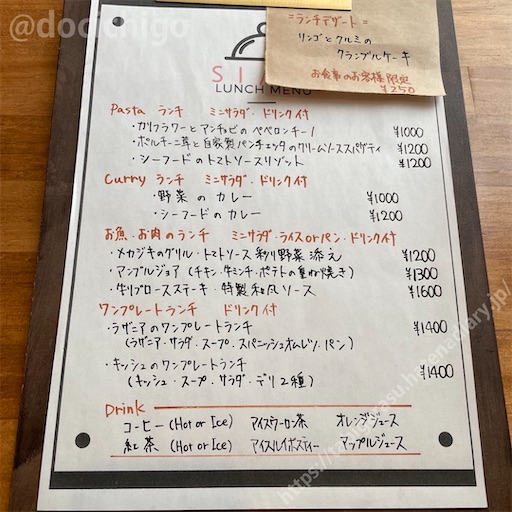 @docichigo
=ランチデザート=
リンゴとクルミの
クランブルケーキ
お食事のお客様限定
¥250
LUNCH MENU
Pasta ランチ ミニサラダ・ドリンク付
・カリフラワーとアンチョビのペペロンチーノ ¥1000
・ポルチーニ茸と自家製パンチェッタのクリームソーススパゲティ ¥1200
・シーフードのトマトソースリゾット ¥1200
Curry ランチ ミニサラダ・ドリンク付
・野菜のカレー ¥1000
・シーフードのカレー ¥1200
お魚・お肉のランチ ミニサラダ・ライスorパン・ドリンク付
・メカジキのグリル・トマトソース 彩り野菜添え ¥1200
・アンプルジュア(チキン・牛ミンチ・ポテトの重ね焼き) ¥1300
・牛リブロースステーキ・特製和風ソース ¥1600
ワンプレートランチ ドリンク付
・ラザニアのワンプレートランチ ¥1400
(ラザニア・サラダ・スープ・スパニッシュオムレツ・パン)
・キッシュのワンプレートランチ ¥1400
(キッシュ・スープ・サラダ・デリ2種)
Drink
コーヒー(Hot or Ice) アイスウーロン茶 オレンジジュース
紅茶 (Hot or Ice) アイスルイボスティー アップルジュース